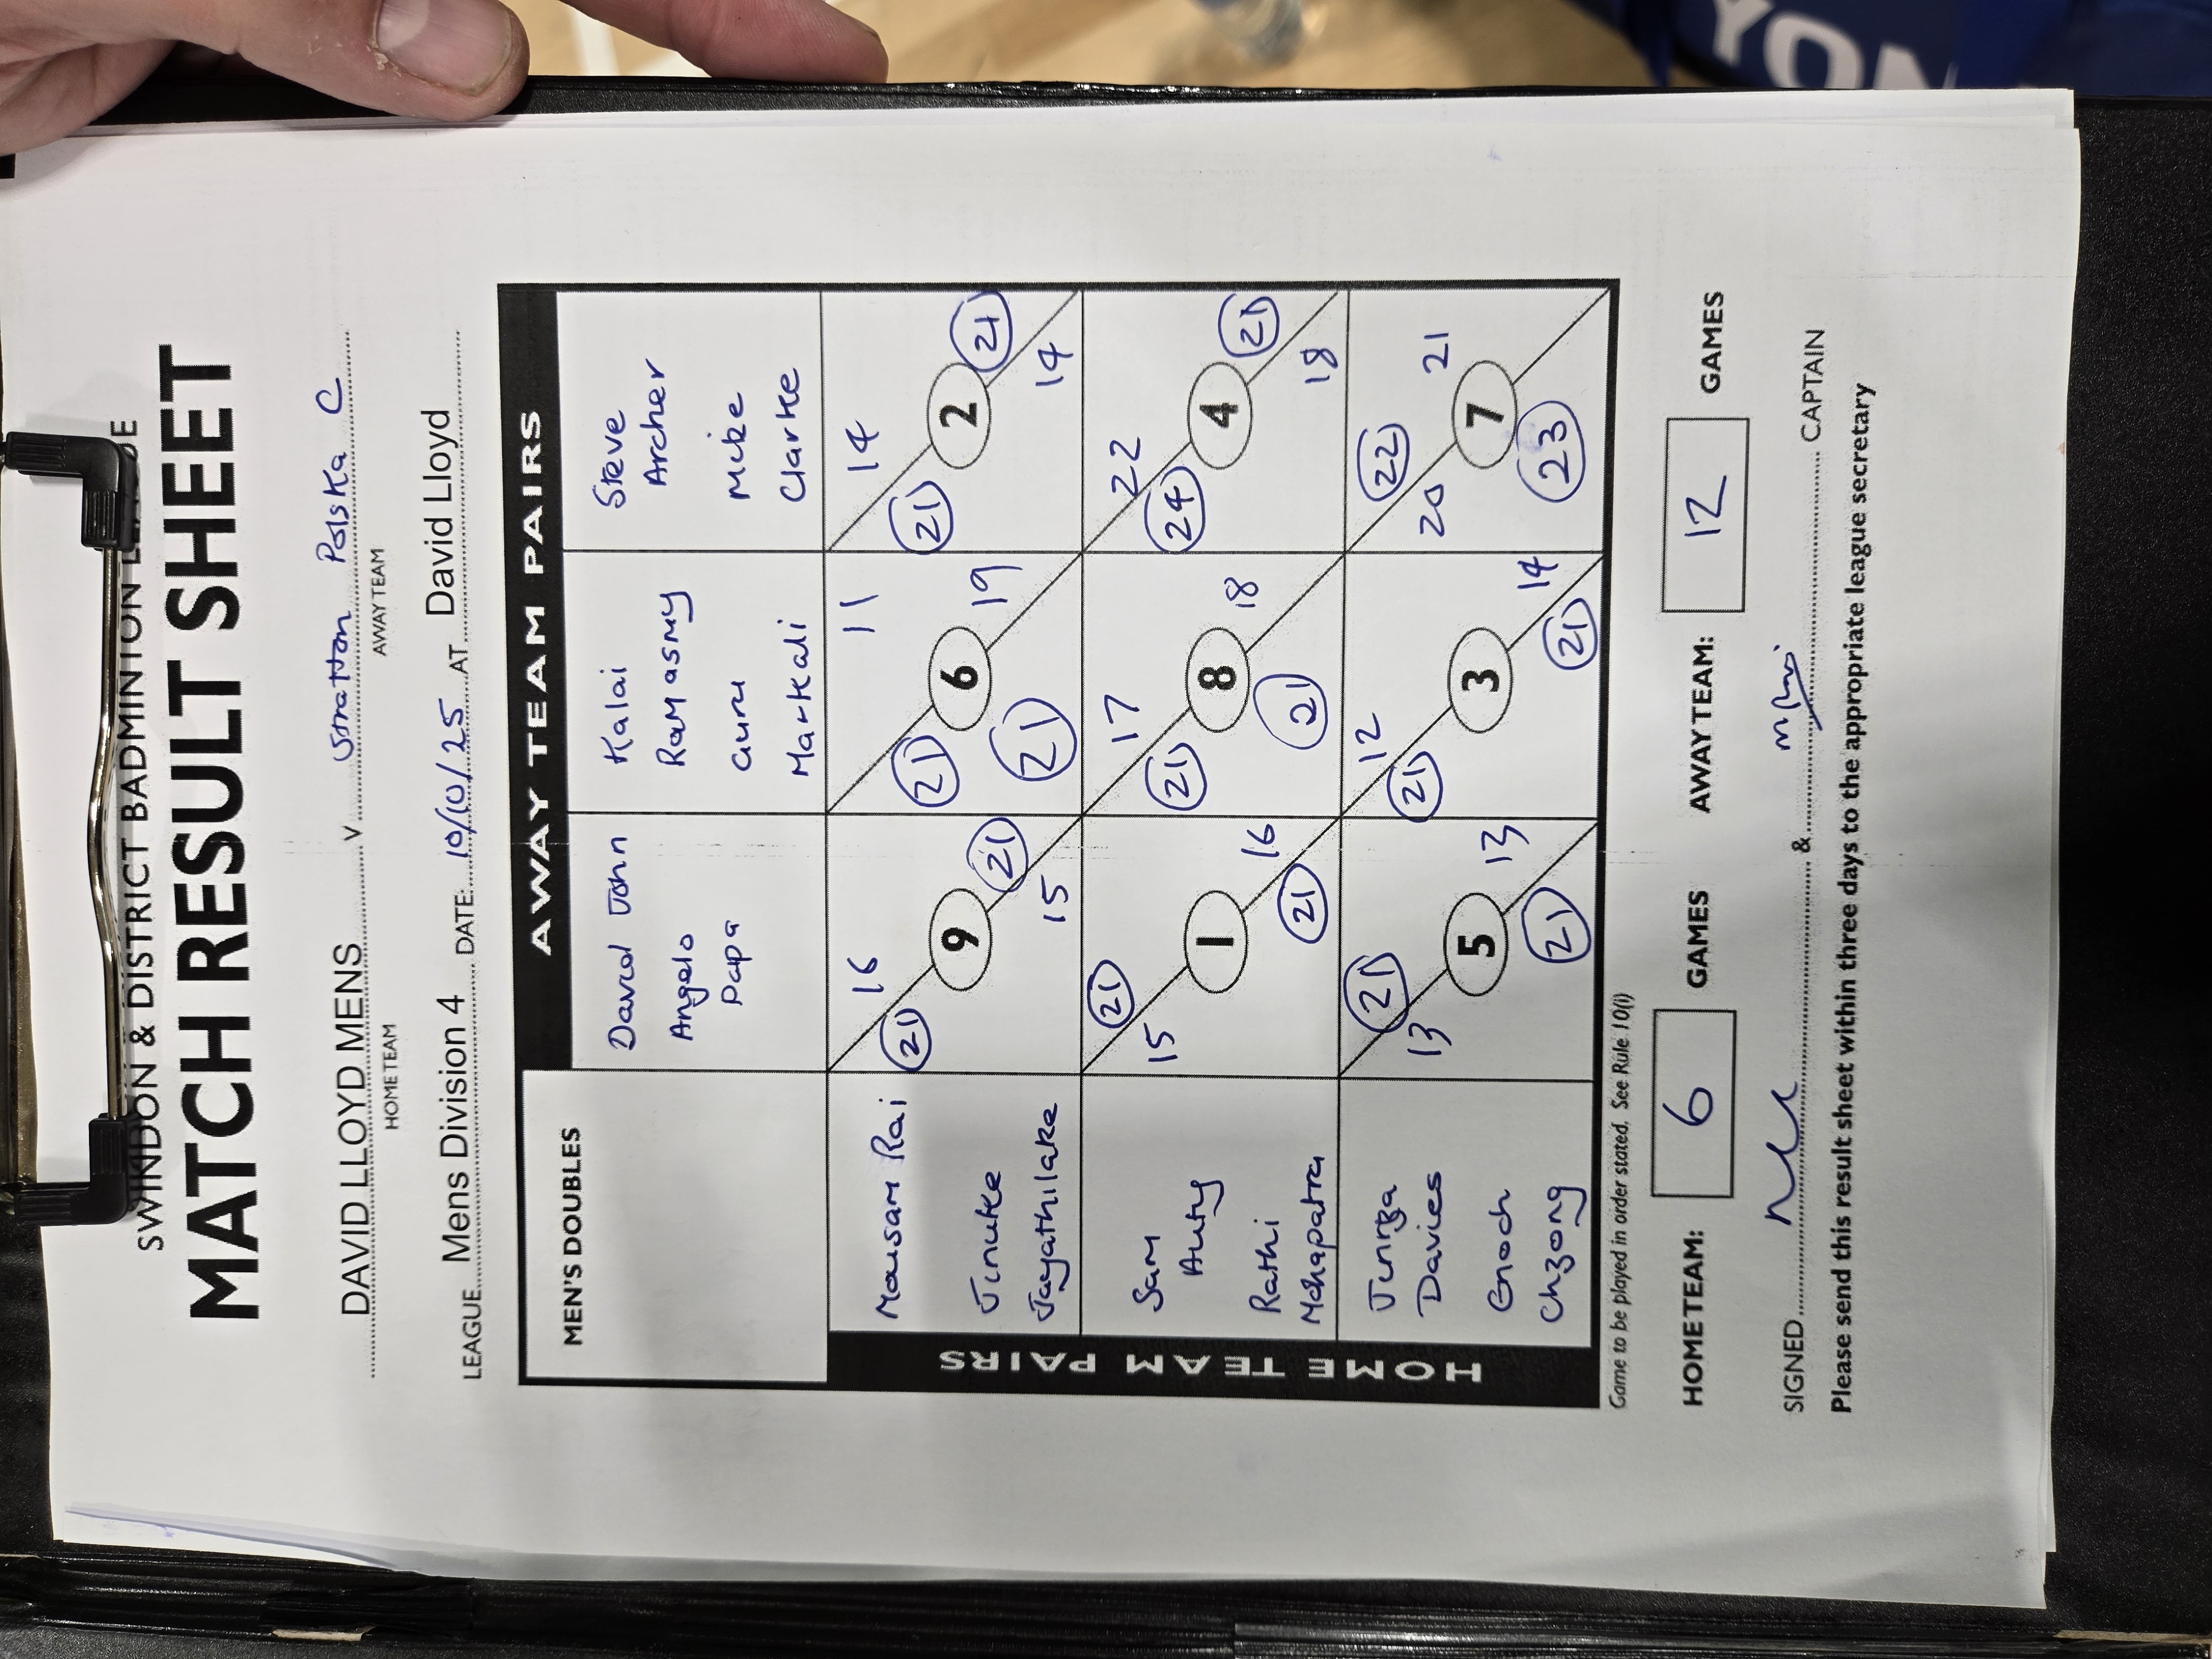 SWINDON & DISTRICT BADMINTON
MATCH RESULT SHEET
DAVID LLOYD MENS v Stratton Polska C
HOME TEAM AWAY TEAM
LEAGUE Mens Division 4 DATE: 10/10/25 AT David Lloyd
AWAY TEAM PAIRS
MEN'S DOUBLES
David John
Angelo
Papa
Kalai
Ramasmy
Guru
Markali
Steve
Archer
Mike
Clarke
HOME TEAM PAIRS
Mousam Rai
Jinuke
Jayathilake
16
21
9
21
15
11
21
6
19
21
14
21
2
21
14
Sam
Auty
Rathi
Mahapatra
21
15
1
16
21
17
21
8
18
21
22
24
4
21
18
Davies
Enoch
21
13
5
13
21
12
21
3
14
21
22
20
7
21
23
Game to be played in order stated. See Rule 10(i)
HOME TEAM: 6 GAMES AWAY TEAM: 12 GAMES
SIGNED & CAPTAIN
Please send this result sheet within three days to the appropriate league secretary
YON